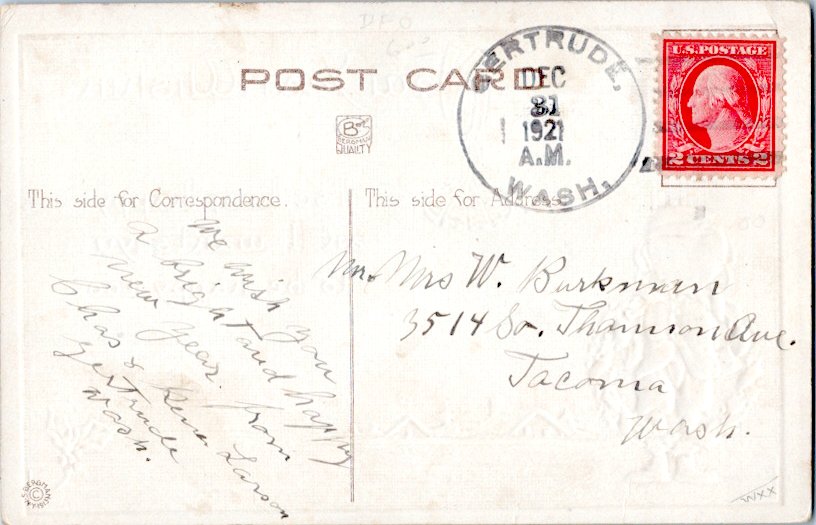 DPO
POST CARD
GERTRUDE,
DEC
31
1921
A.M.
WASH.
U.S. POSTAGE
2 CENTS 2
BERGMAN
QUALITY
This side for Correspondence.
This side for Address.
We wish you
a bright and happy
New Year. from
Chas & Gene Larson
Gertrude
Wash.
Mr. Mrs W. Burkman
3514 So. Thomson Ave.
Tacoma
Wash.
S. BERGMAN
©
N.Y. 1913
WXX